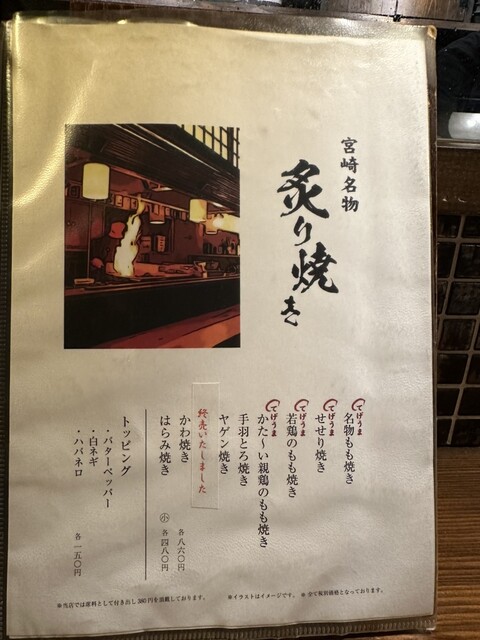 宮崎名物
炙り焼き
てげうま
名物もも焼き
てげうま
せせり焼き
てげうま
若鶏のもも焼き
てげうま
かた〜い親鶏のもも焼き
手羽とろ焼き
ヤゲン焼き
終売いたしました
かわ焼き
はらみ焼き
各八六〇円
小 各四八〇円
トッピング
・バターペッパー
・白ネギ
・ハバネロ
各一五〇円
※当店では席料として付き出し380円を頂戴しております。
※イラストはイメージです。
※全て税別価格となっております。